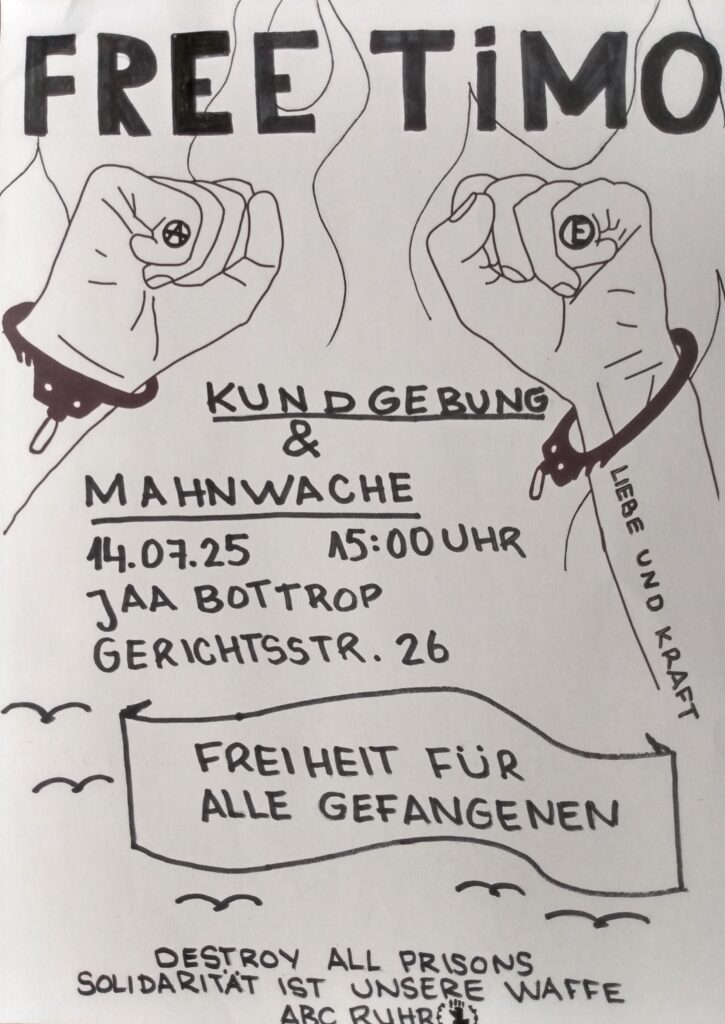 FREE TiMO
A
E
KUNDGEBUNG
&
MAHNWACHE
14.07.25 15:00 UHR
JAA BOTTROP
GERICHTSSTR. 26
LIEBE UND KRAFT
FREIHEIT FÜR
ALLE GEFANGENEN
DESTROY ALL PRISONS
SOLIDARITÄT IST UNSERE WAFFE
ABC RUHR